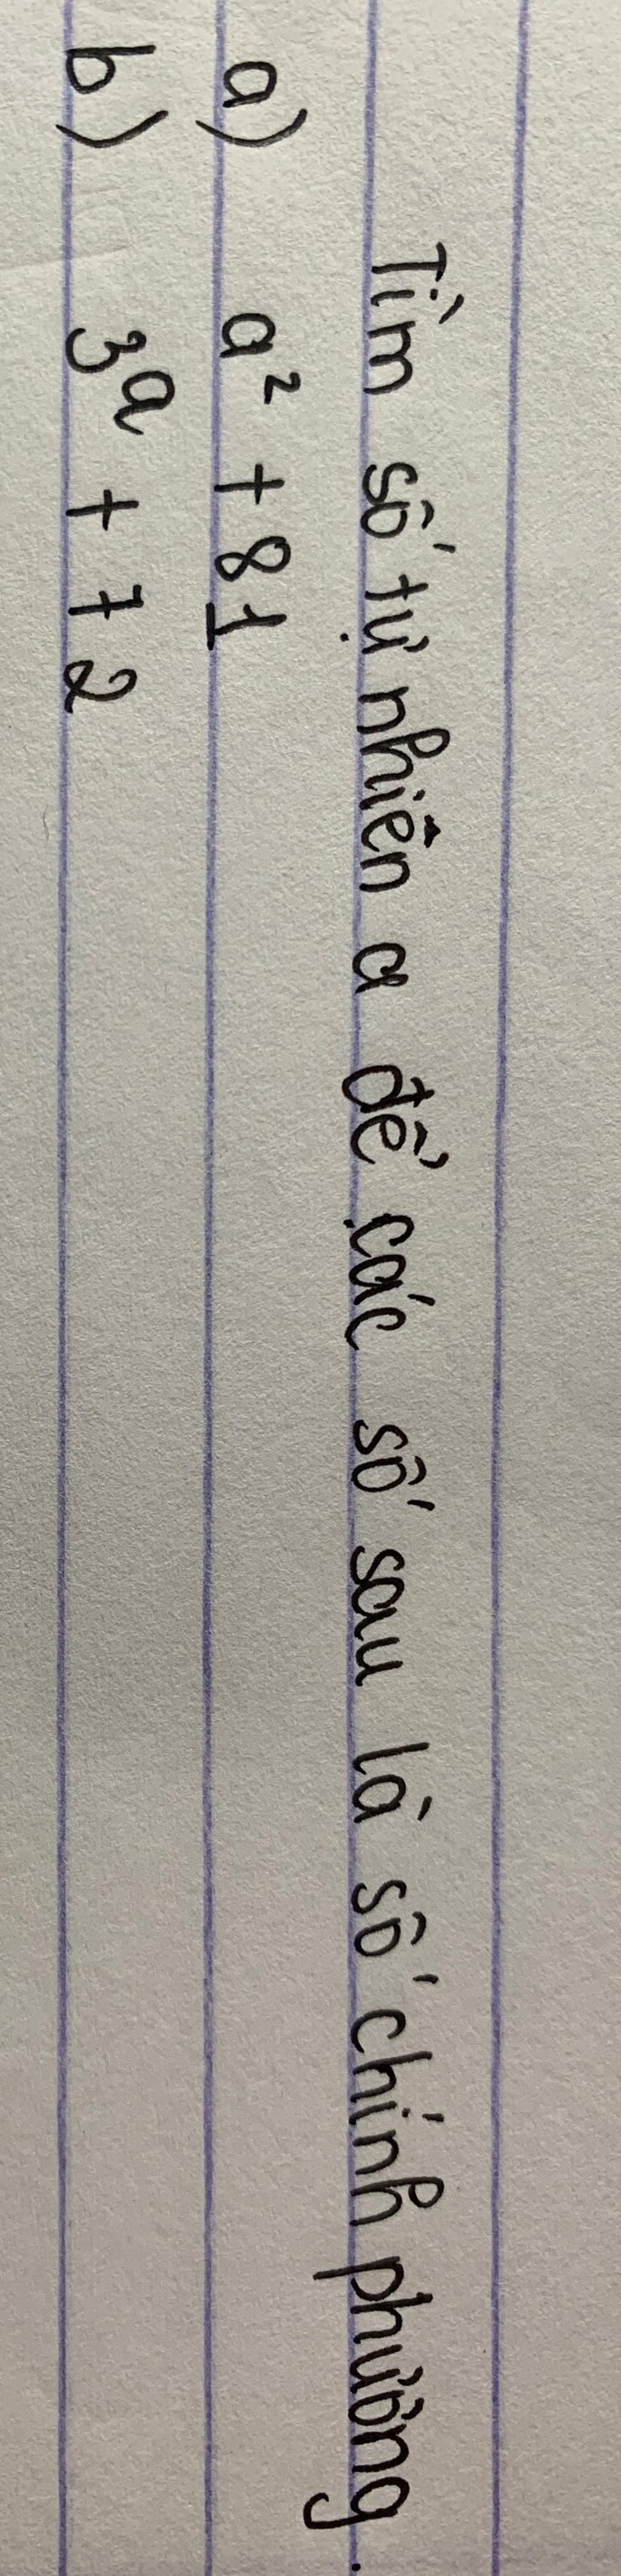 Tìm số tự nhiên a để các số sau là số chính phương.
a) a² + 81
b) 3ᵃ + 72